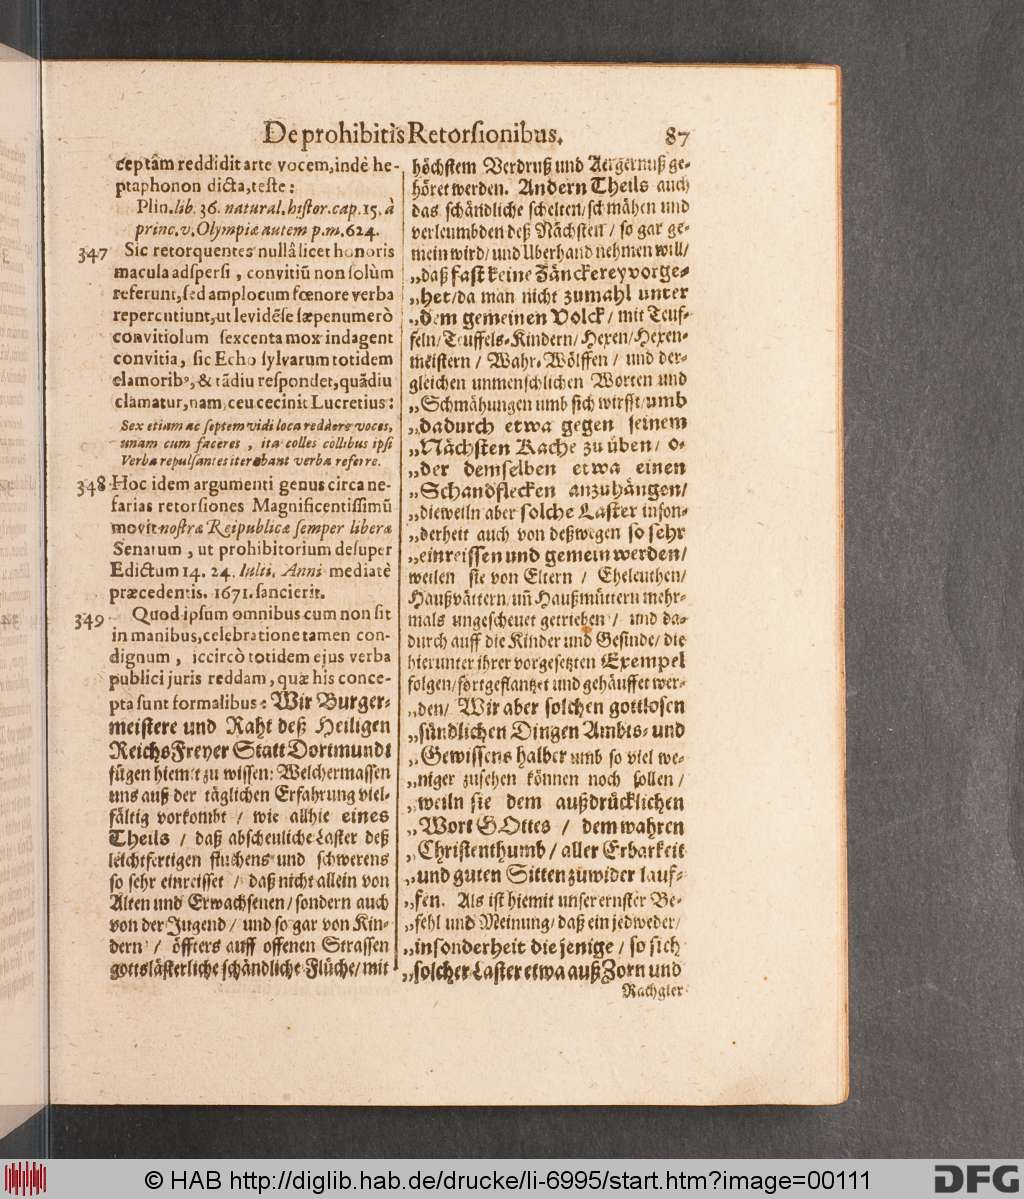 De prohibitìs Retorsionibus. 87
ceptâm reddidit arte vocem, indè he-
ptaphonon dicta, teste:
Plin. lib. 36. natural. histor. cap. 15. à
princ. v. Olympiæ autem p. m. 624.
347 Sic retorquentes nullâ licet honoris
macula adspersi, convitiũ non solùm
referunt, sed amplocum fœnore verba
repercutiunt, ut levidẽse sæpenumerò
convitiolum sexcenta mox indagent
convitia, sic Echo sylvarum totidem
clamorib9, & tãdiu respondet, quãdiu
clamatur, nam, ceu cecinit Lucretius:
Sex etiam ac septem vidi loca reddere voces,
unam cum faceres, ita colles collibus ipsi
Verba repulsantes iterabant verba referre.
348 Hoc idem argumenti genus circa ne-
farias retorsiones Magnificentissimũ
movit nostræ Reipublicæ semper liberæ
Senatum, ut prohibitorium desuper
Edictum 14. 24. Iulii. Anni mediatè
præcedentis. 1671. sancierit.
349 Quod ipsum omnibus cum non sit
in manibus, celebratione tamen con-
dignum, iccircò totidem ejus verba
publici juris reddam, quæ his conce-
pta sunt formalibus: Wir Burger-
meistere und Raht deß Heiligen
Reichs Freyer Statt Dortmundt
fügen hiemit zu wissen: Welchermassen
uns auß der täglichen Erfahrung viel-
fältig vorkombt / wie allhie eines
Theils / daß abscheuliche Laster deß
leichtfertigen fluchens und schwerens
so sehr einreisset / daß nicht allein von
Alten und Erwachsenen / sondern auch
von der Jugend / und so gar von Kin-
dern / öffters auff offenen Strassen
gottslästerliche schändliche Flüche / mit
höchstem Verdruß und Aergernuß ge-
höret werden. Andern Theils auch
das schändliche schelten / schmähen und
verleumbden deß Nächsten / so gar ge-
mein wird / und Uberhand nehmen will /
„daß fast keine Zänckerey vorge-
„het / da man nicht zumahl unter
„dem gemeinen Volck / mit Teuf-
feln / Teuffels-Kindern / Hexen / Hexen-
meistern / Wahr-Wölffen / und der-
gleichen unmenschlichen Worten und
„Schmähungen umb sich wirfft / umb
„dadurch etwa gegen seinem
„Nächsten Rache zu üben / o-
„der demselben etwa einen
„Schandflecken anzuhängen /
„dieweiln aber solche Laster inson-
„derheit auch von deßwegen so sehr
„einreissen und gemein werden /
weilen sie von Eltern / Eheleuthen /
Haußvättern / uñ Haußmüttern mehr-
mals ungescheuet getrieben / und da-
durch auff die Kinder und Gesinde / die
hierunter ihrer vorgesetzten Exempel
folgen / fortgeflantzet und gehäuffet wer-
„den / Wir aber solchen gottlosen
„sündlichen Dingen Ambts- und
„Gewissens halber umb so viel we-
„niger zusehen können noch sollen /
„weiln sie dem außdrücklichen
„Wort GOttes / dem wahren
„Christenthumb / aller Erbarkeit
„und guten Sitten zuwider lauf-
„fen. Als ist hiemit unser ernster Be-
„fehl und Meinung / daß ein jedweder /
„insonderheit die jenige / so sich
„solcher Laster etwa auß Zorn und
Rachgier
© HAB http://diglib.hab.de/drucke/li-6995/start.htm?image=00111
DFG